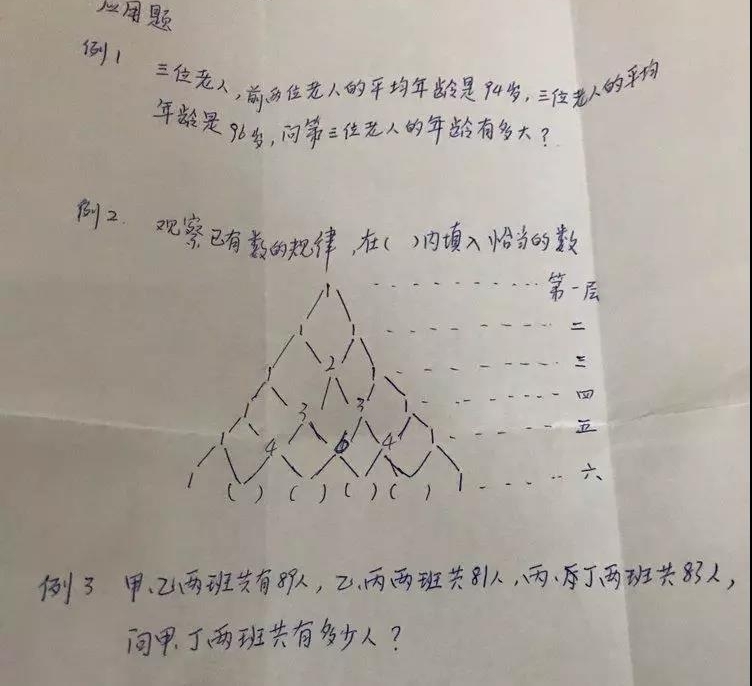 应用题
例1 三位老人，前两位老人的平均年龄是94岁，三位老人的平均
年龄是96岁，问第三位老人的年龄有多大？
例2. 观察已有数的规律，在（ ）内填入恰当的数
1 第一层
1 1 二
1 2 1 三
1 3 3 1 四
1 4 6 4 1 五
1 ( ) ( ) ( ) ( ) 1 六
例3 甲、乙两班共有89人，乙、丙两班共81人，丙、丁两班共83人，
问甲、丁两班共有多少人？